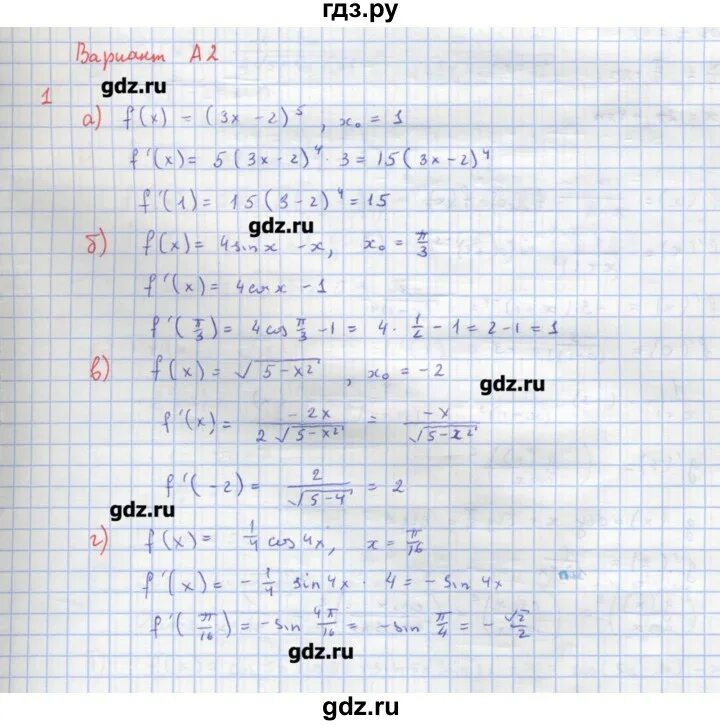 гдз.ру
Вариант А2
gdz.ru
1
а) f(x) = (3x - 2)⁵, x₀ = 1
f'(x) = 5(3x - 2)⁴ · 3 = 15(3x - 2)⁴
f'(1) = 15(3 - 2)⁴ = 15
gdz.ru
б) f(x) = 4sin x - x, x₀ = π/3
f'(x) = 4cos x - 1
f'(π/3) = 4cos π/3 - 1 = 4 · 1/2 - 1 = 2 - 1 = 1
в) f(x) = √(5 - x²), x₀ = -2
gdz.ru
f'(x) = -2x / 2√(5 - x²) = -x / √(5 - x²)
f'(-2) = 2 / √(5 - 4) = 2
gdz.ru
г) f(x) = 1/4 cos 4x, x = π/16
f'(x) = - 1/4 sin 4x · 4 = - sin 4x
f'(π/16) = - sin 4π/16 = - sin π/4 = - √2/2
gdz.ru
gdz.ru